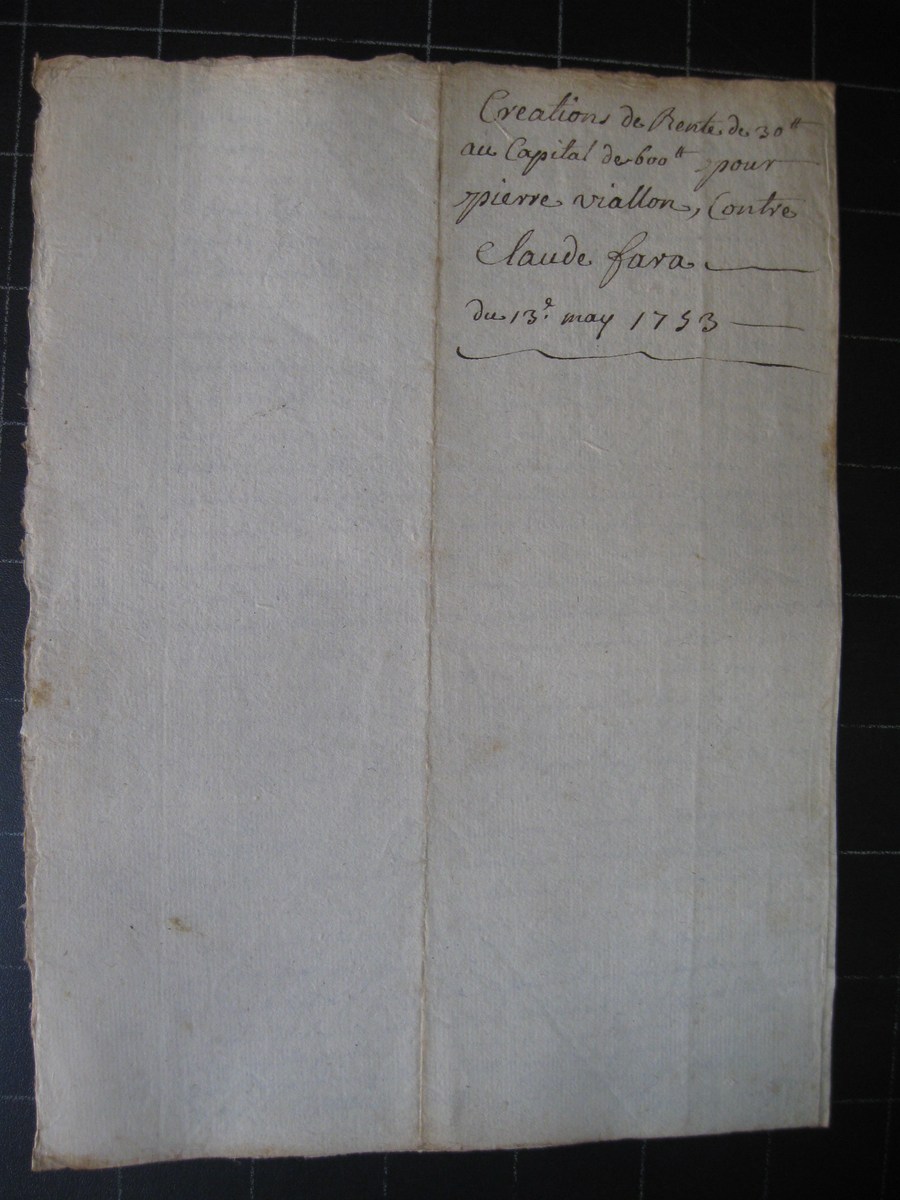 Creations de Rente de 30tt
au Capital de 600tt pour
pierre viallon, Contre
Claude fara
du 13e. may 1753